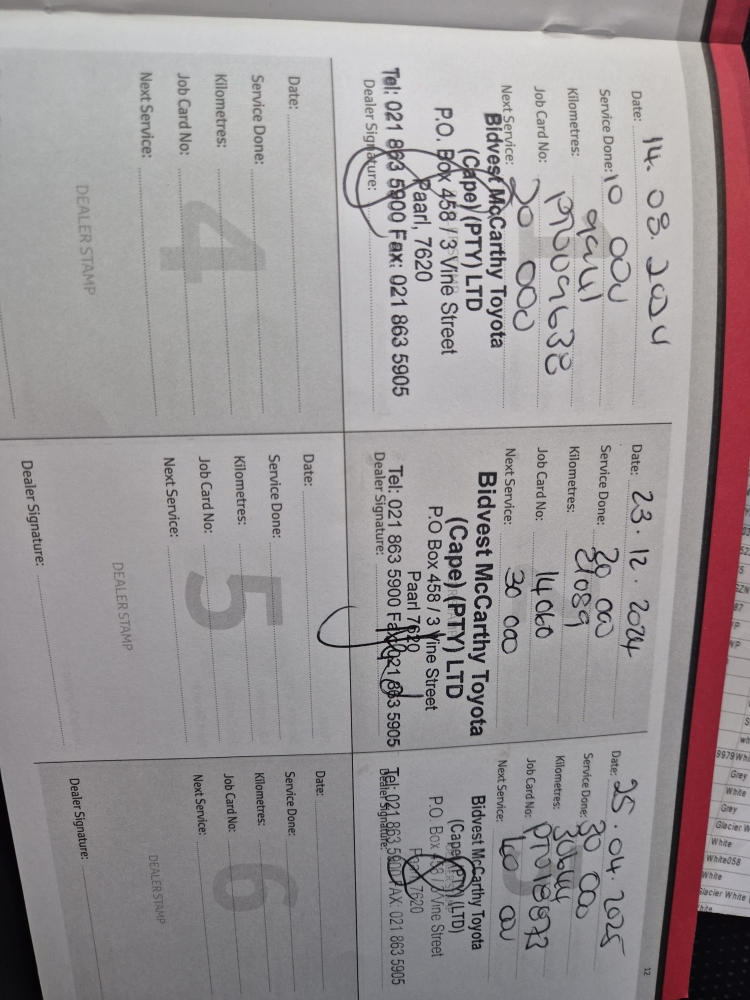 Date: 14. 08. 2024
Service Done: 10 000
Kilometres: 9941
Job Card No: PT0009638
Next Service: 20 000
Bidvest McCarthy Toyota
(Cape) (PTY) LTD
P.O. Box 458 / 3 Vine Street
Paarl, 7620
Dealer Signature:
Tel: 021 863 5900 Fax: 021 863 5905
Date: 23. 12. 2024
Service Done: 20 000
Kilometres: 21089
Job Card No: 14060
Next Service: 30 000
Bidvest McCarthy Toyota
(Cape) (PTY) LTD
P.O Box 458 / 3 Vine Street
Paarl 7620
Tel: 021 863 5900 Fax: 021 863 5905
Dealer Signature:
Date: 25. 04. 2025
Service Done: 30 000
Kilometres:
Job Card No:
Next Service: 40 000
Bidvest McCarthy Toyota
(Cape) (PTY) (LTD)
P.O. Box 458 / 3 Vine Street
Paarl 7620
Tel: 021 863 5900 FAX: 021 863 5905
Dealer Signature:
12
4
Date:
Service Done:
Kilometres:
Job Card No:
Next Service:
DEALER STAMP
5
Date:
Service Done:
Kilometres:
Job Card No:
Next Service:
DEALER STAMP
Dealer Signature:
6
Date:
Service Done:
Kilometres:
Job Card No:
Next Service:
DEALER STAMP
Dealer Signature:
Grey
White
Grey
Glacier W
White
White058
White
Glacier White